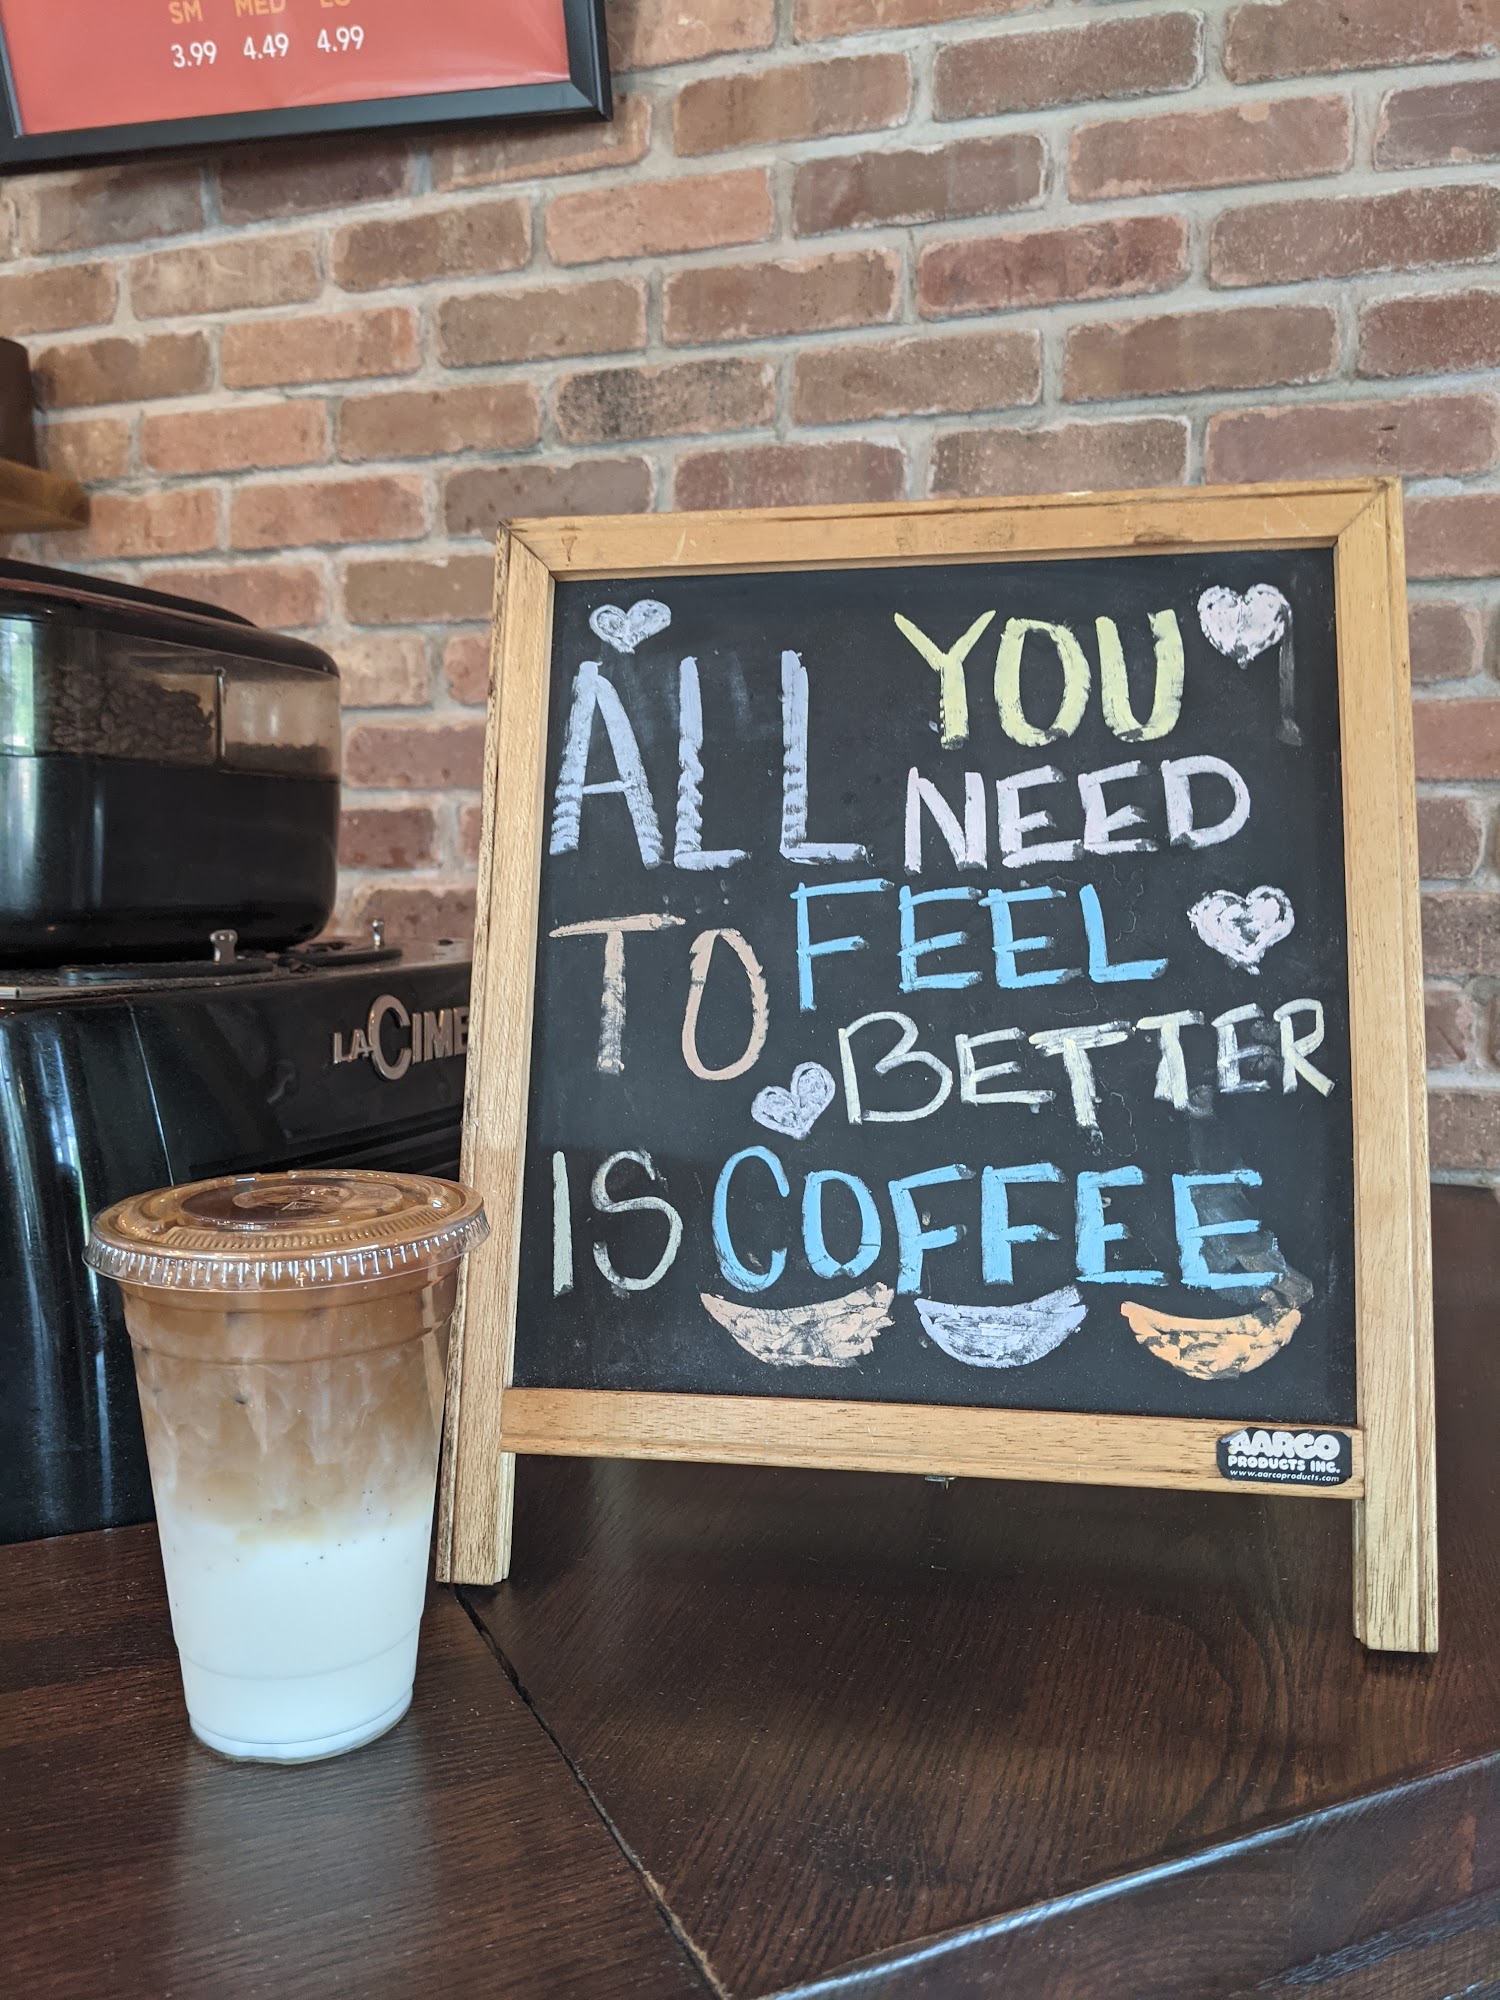 SM MED LG
3.99 4.49 4.99
ALL YOU
NEED
TO FEEL
BETTER
IS COFFEE
LACIME
AARCO
PRODUCTS INC.
www.aarcoproducts.com